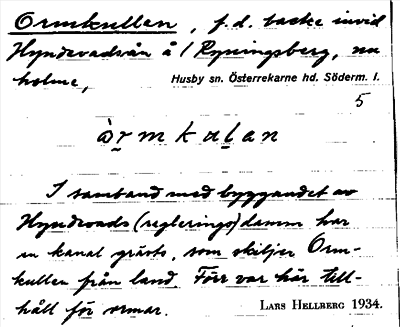 Ormkullen, f.d. backe invid
Hyndevadsån å / Ryningsberg, nu
holme, Husby sn. Österrekarne hd. Söderm. l.
5
òrmkulan
I samband med byggandet av
Hyndevads (reglerings) damm har
en kanal grävts, som skiljer Orm-
kullen från land. Förr var här till-
håll för ormar. LARS HELLBERG 1934.